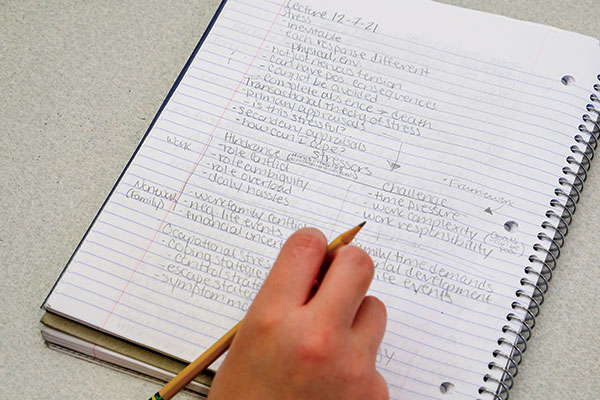 Lecture 12-7-21
Stress
- inevitable
- each response different
- physical, env.
- not just nervous tension
- can have pos. consequences
- cannot be avoided
- complete absence → death
Transactional Theory of stress
- primary appraisals
- is this stressful?
- secondary appraisals
- how can I cope?
Stressors
- Framework
Work
Hindrance
- role conflict
- role ambiguity
- role overload
- daily hassles
Challenge
- time pressure
- work complexity
- work responsibility
Nonwork (Family)
- work family conflict
- neg. life events
- financial uncert
family time demands
development
life events
Occupational Stress
- coping strategies
- control strat
- escape strat
- symptom ma